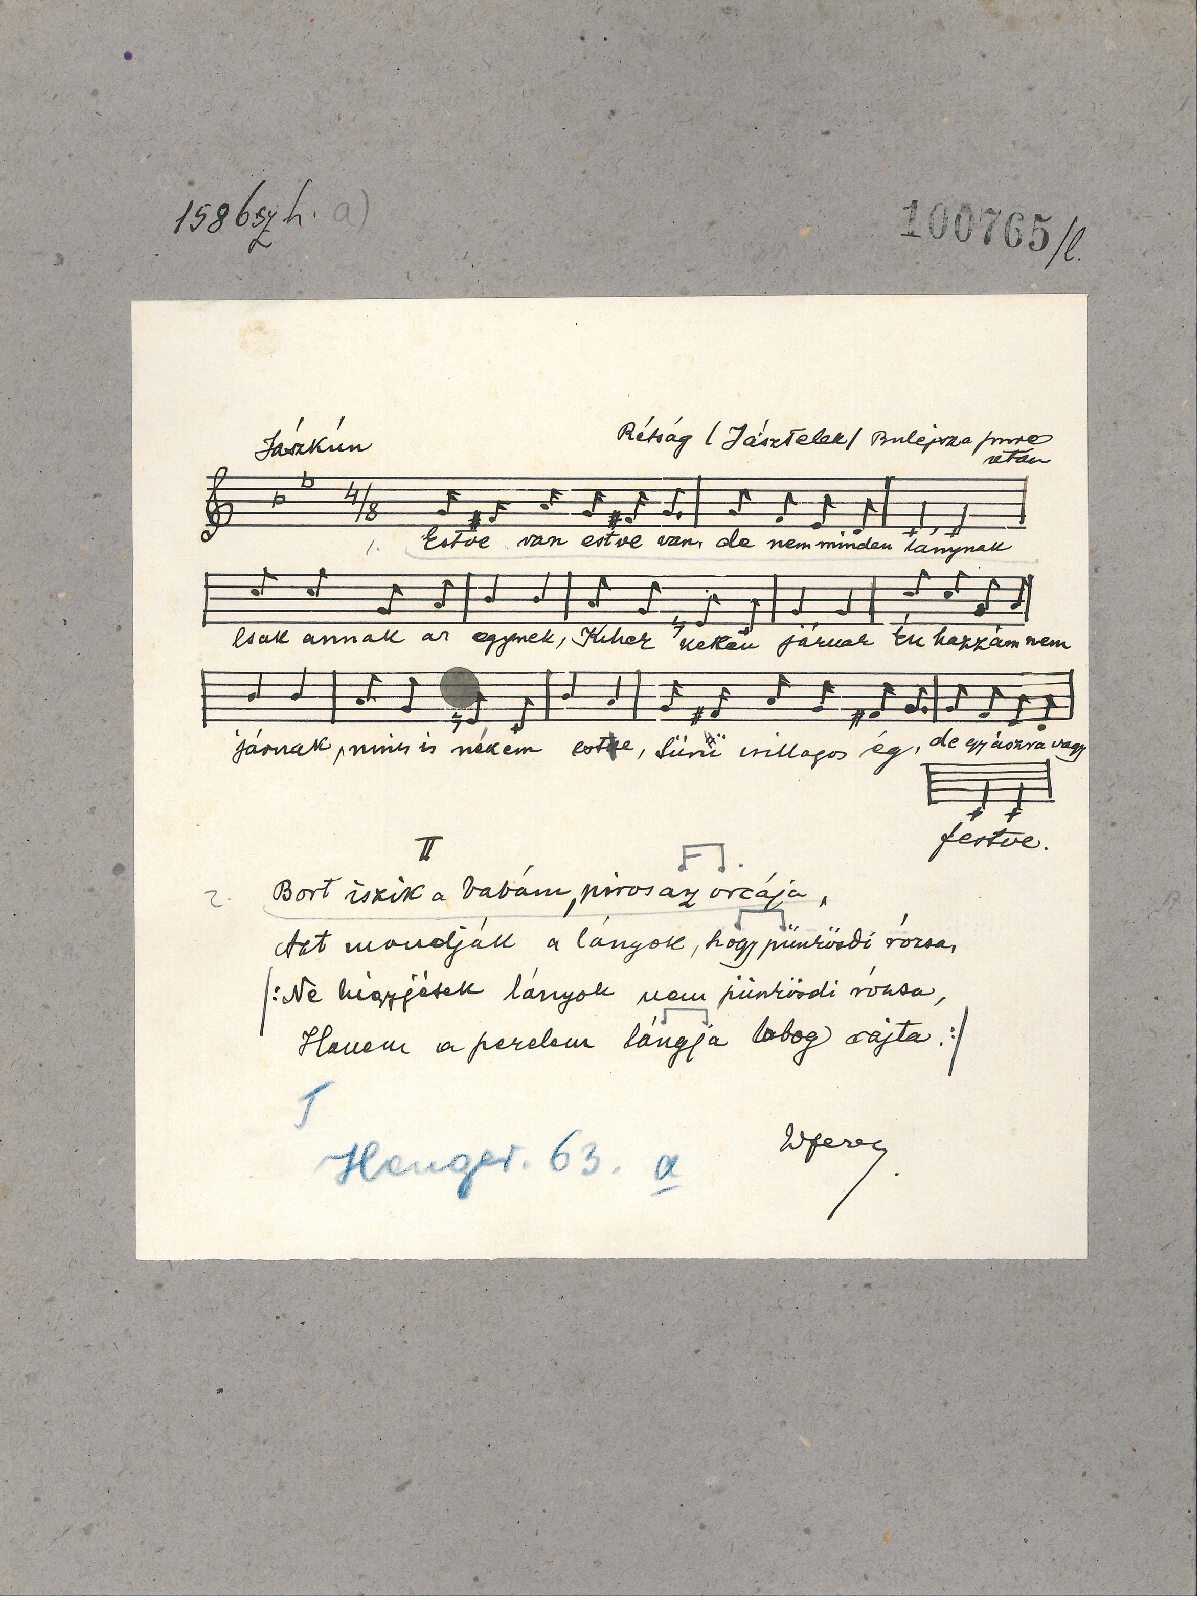 1586 sz h. a)
100765/l.
Jászkún
Rétság / Jásztelek /
után
4/8
1. Estve van estve van, de nem minden lánynak
Csak annak az egynek, Kihez neken járnak Én hazzám nem
járnak, nincs is nékem estve, Sürü csillagos ég, de gyászra vagy
festve.
II
2. Bort iszik a babám, piros az orcája,
Azt mondják a lányok, hogy pünkösdi rózsa,
/: Ne higyjétek lányok nem pünkösdi rózsa,
Hanem a perelem lángja lobog rajta :/
T
Henger. 63. a